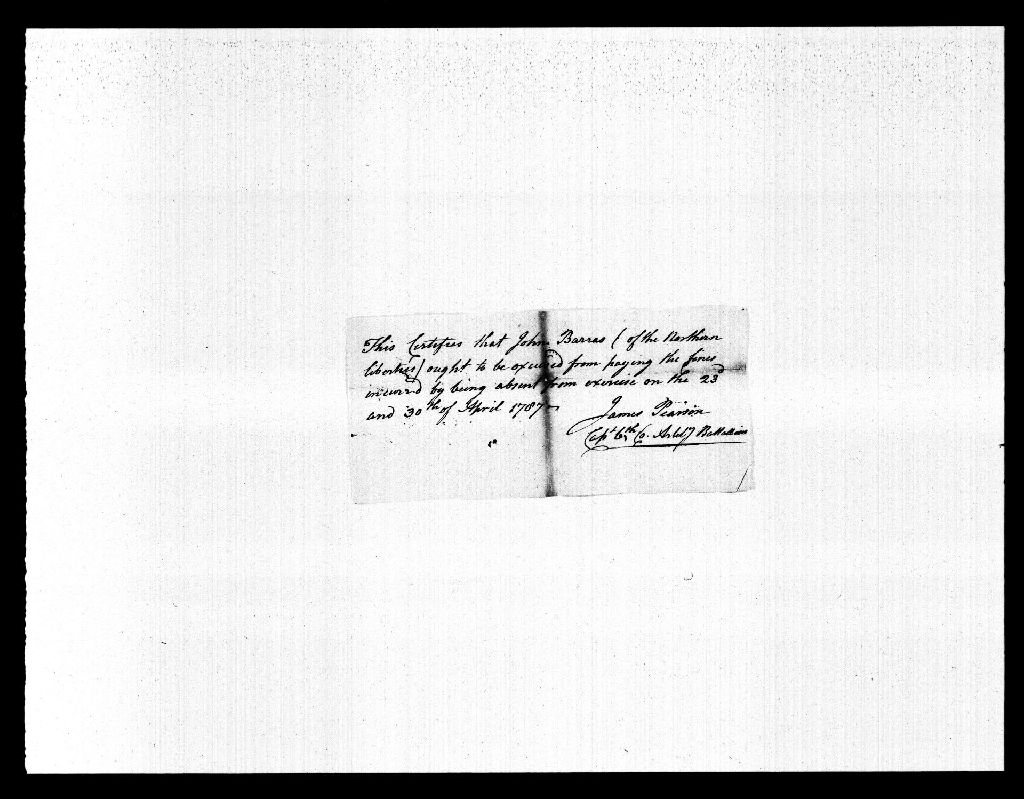 This Certifies that John Barras ( of the Northern
liberties) ought to be excused from paying the fines
incurr'd by being absent from exercise on the 23d
and 30th of April 1787
James Pearson
Capt 6th Co. Artily Battallion